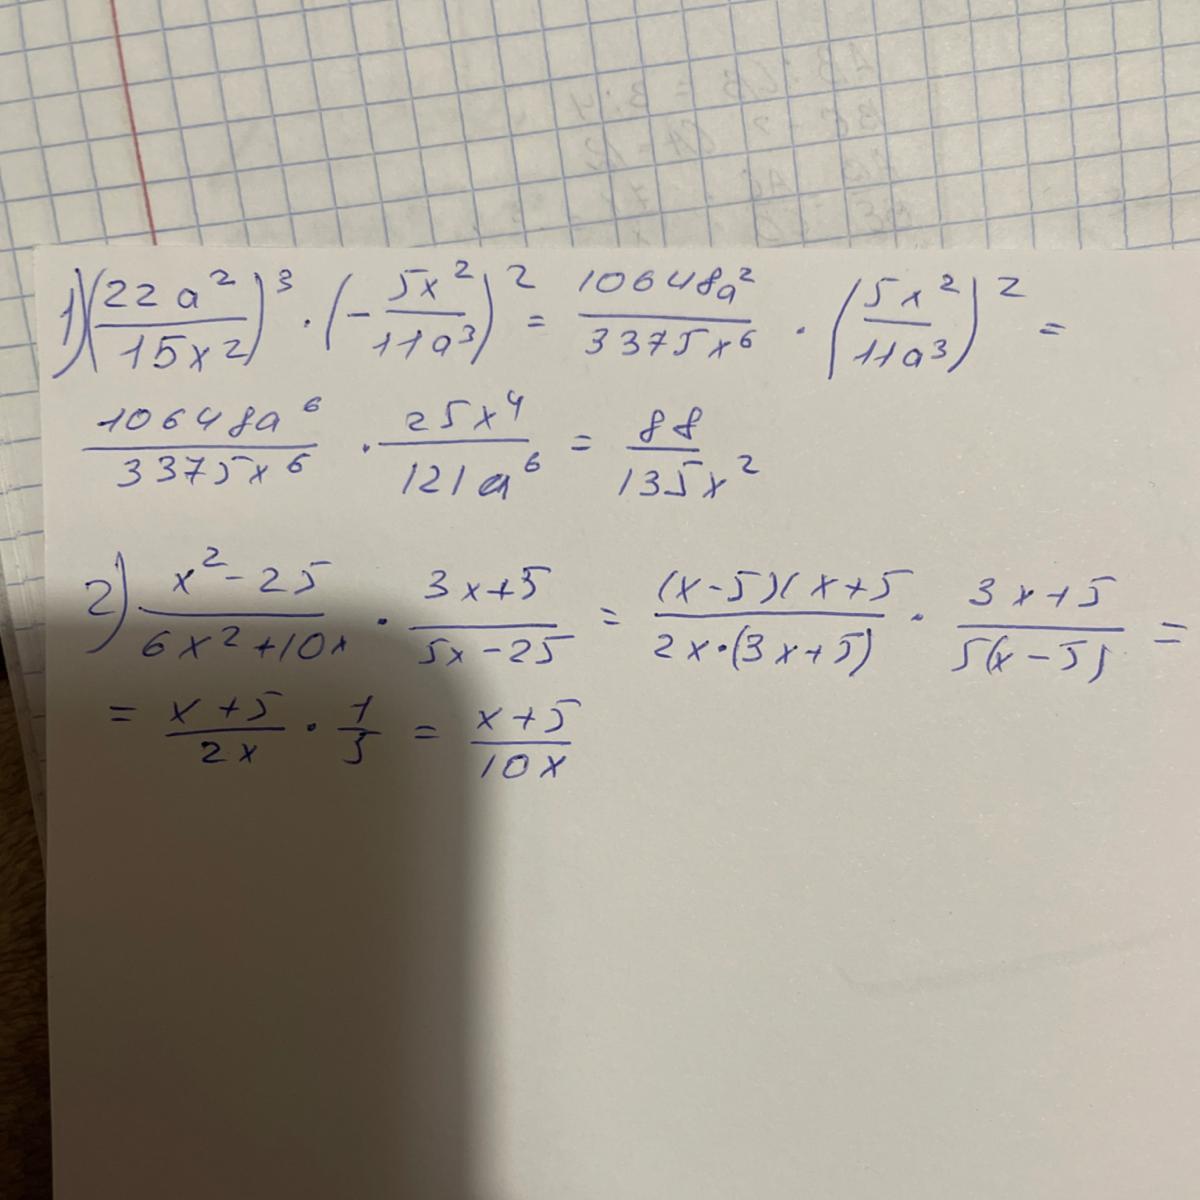 1) (22a²/15x²)³ · (-5x²/11a³)² = 10648a²/3375x⁶ · (5x²/11a³)² =
10648a⁶/3375x⁶ · 25x⁴/121a⁶ = 88/135x²
2) x²-25/6x²+10x · 3x+5/5x-25 = (x-5)(x+5/2x·(3x+5) · 3x+5/5(x-5) =
= x+5/2x · 1/5 = x+5/10x